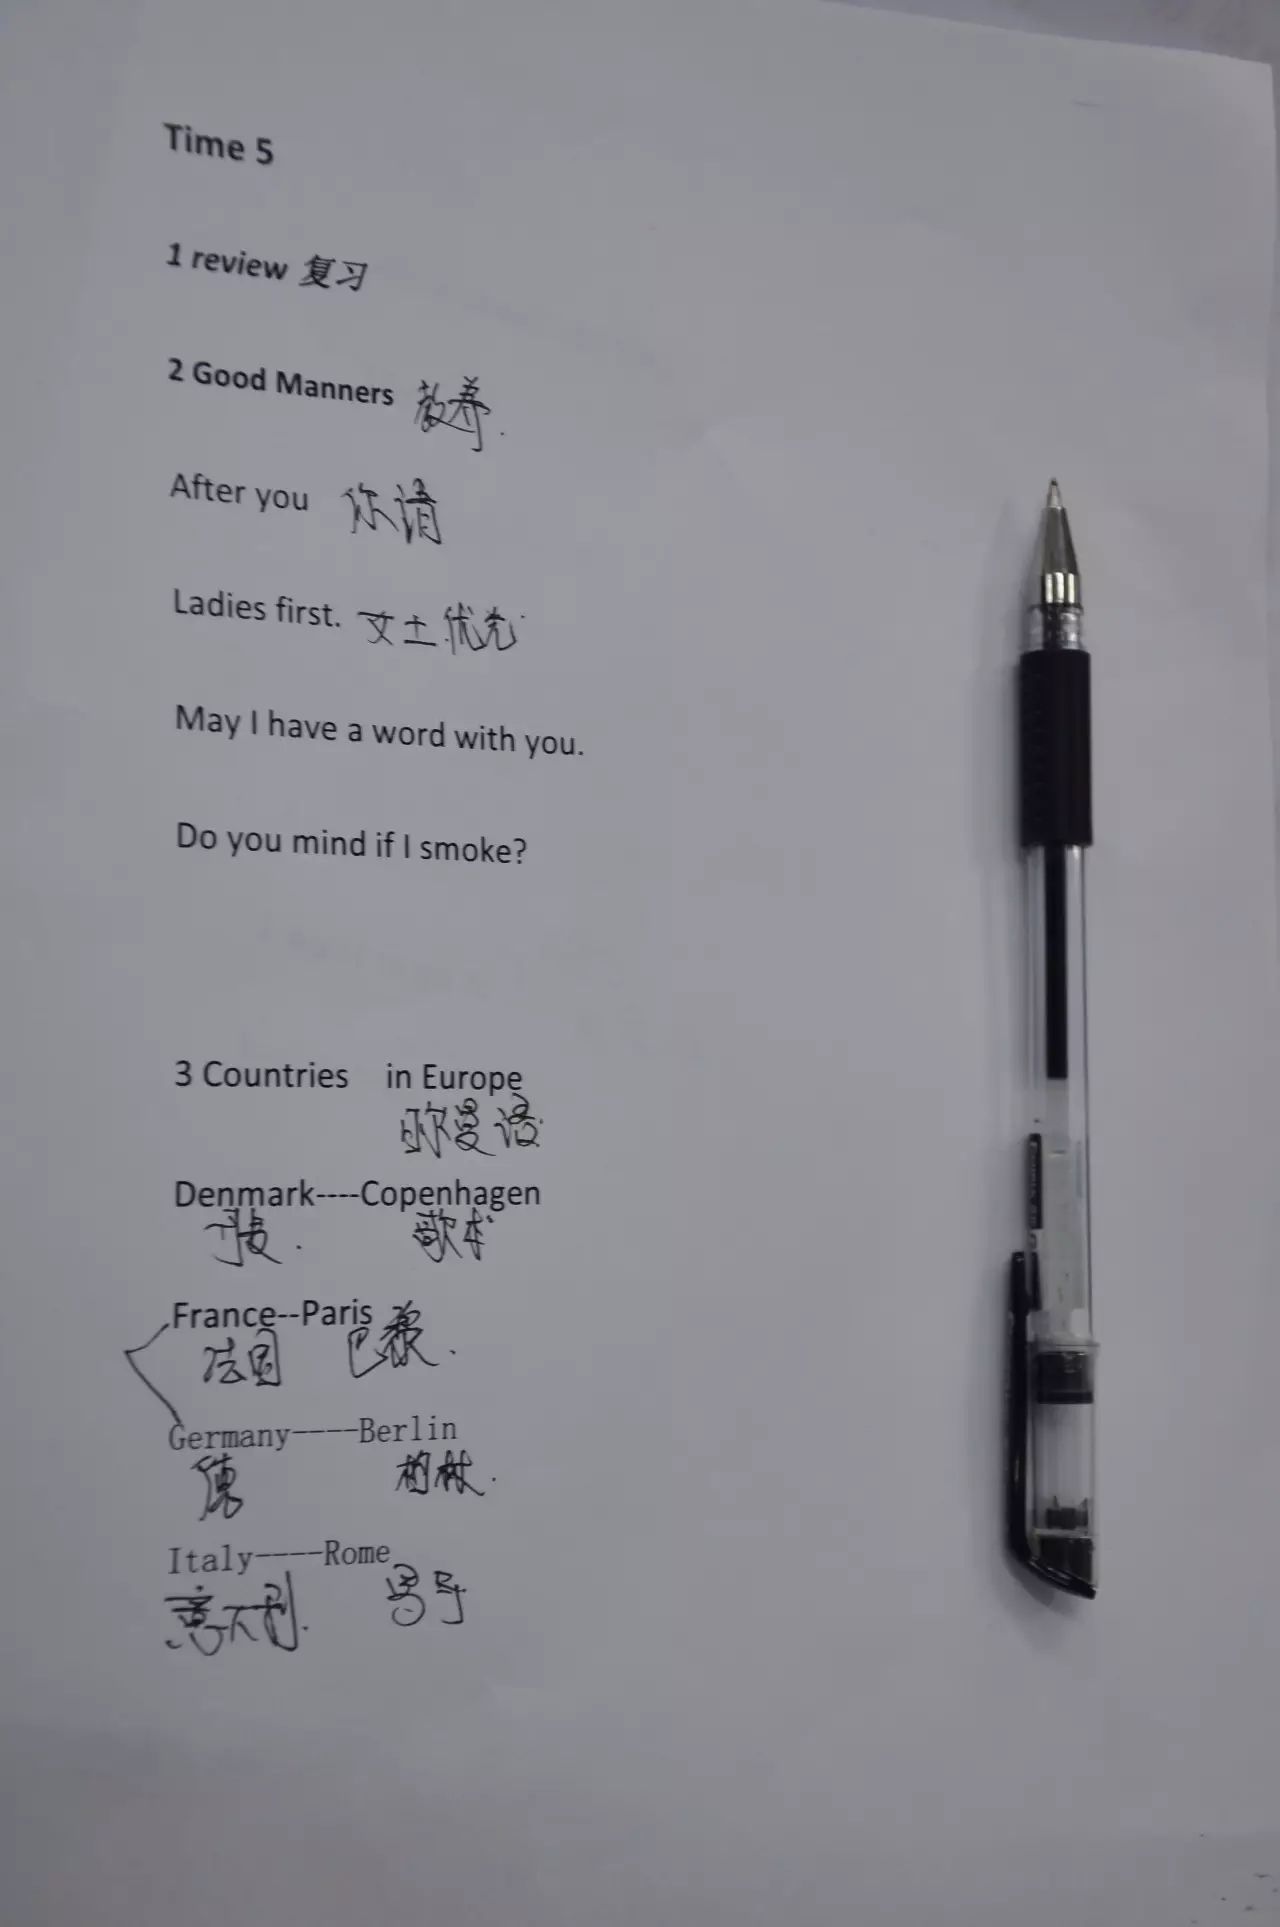 Time 5
1 review 复习
2 Good Manners 教养.
After you 你请
Ladies first. 女士优先
May I have a word with you.
Do you mind if I smoke?
3 Countries in Europe
Denmark----Copenhagen
丹麦.
France--Paris
法国 巴黎.
Germany----Berlin
德 柏林.
Italy----Rome
意大利.